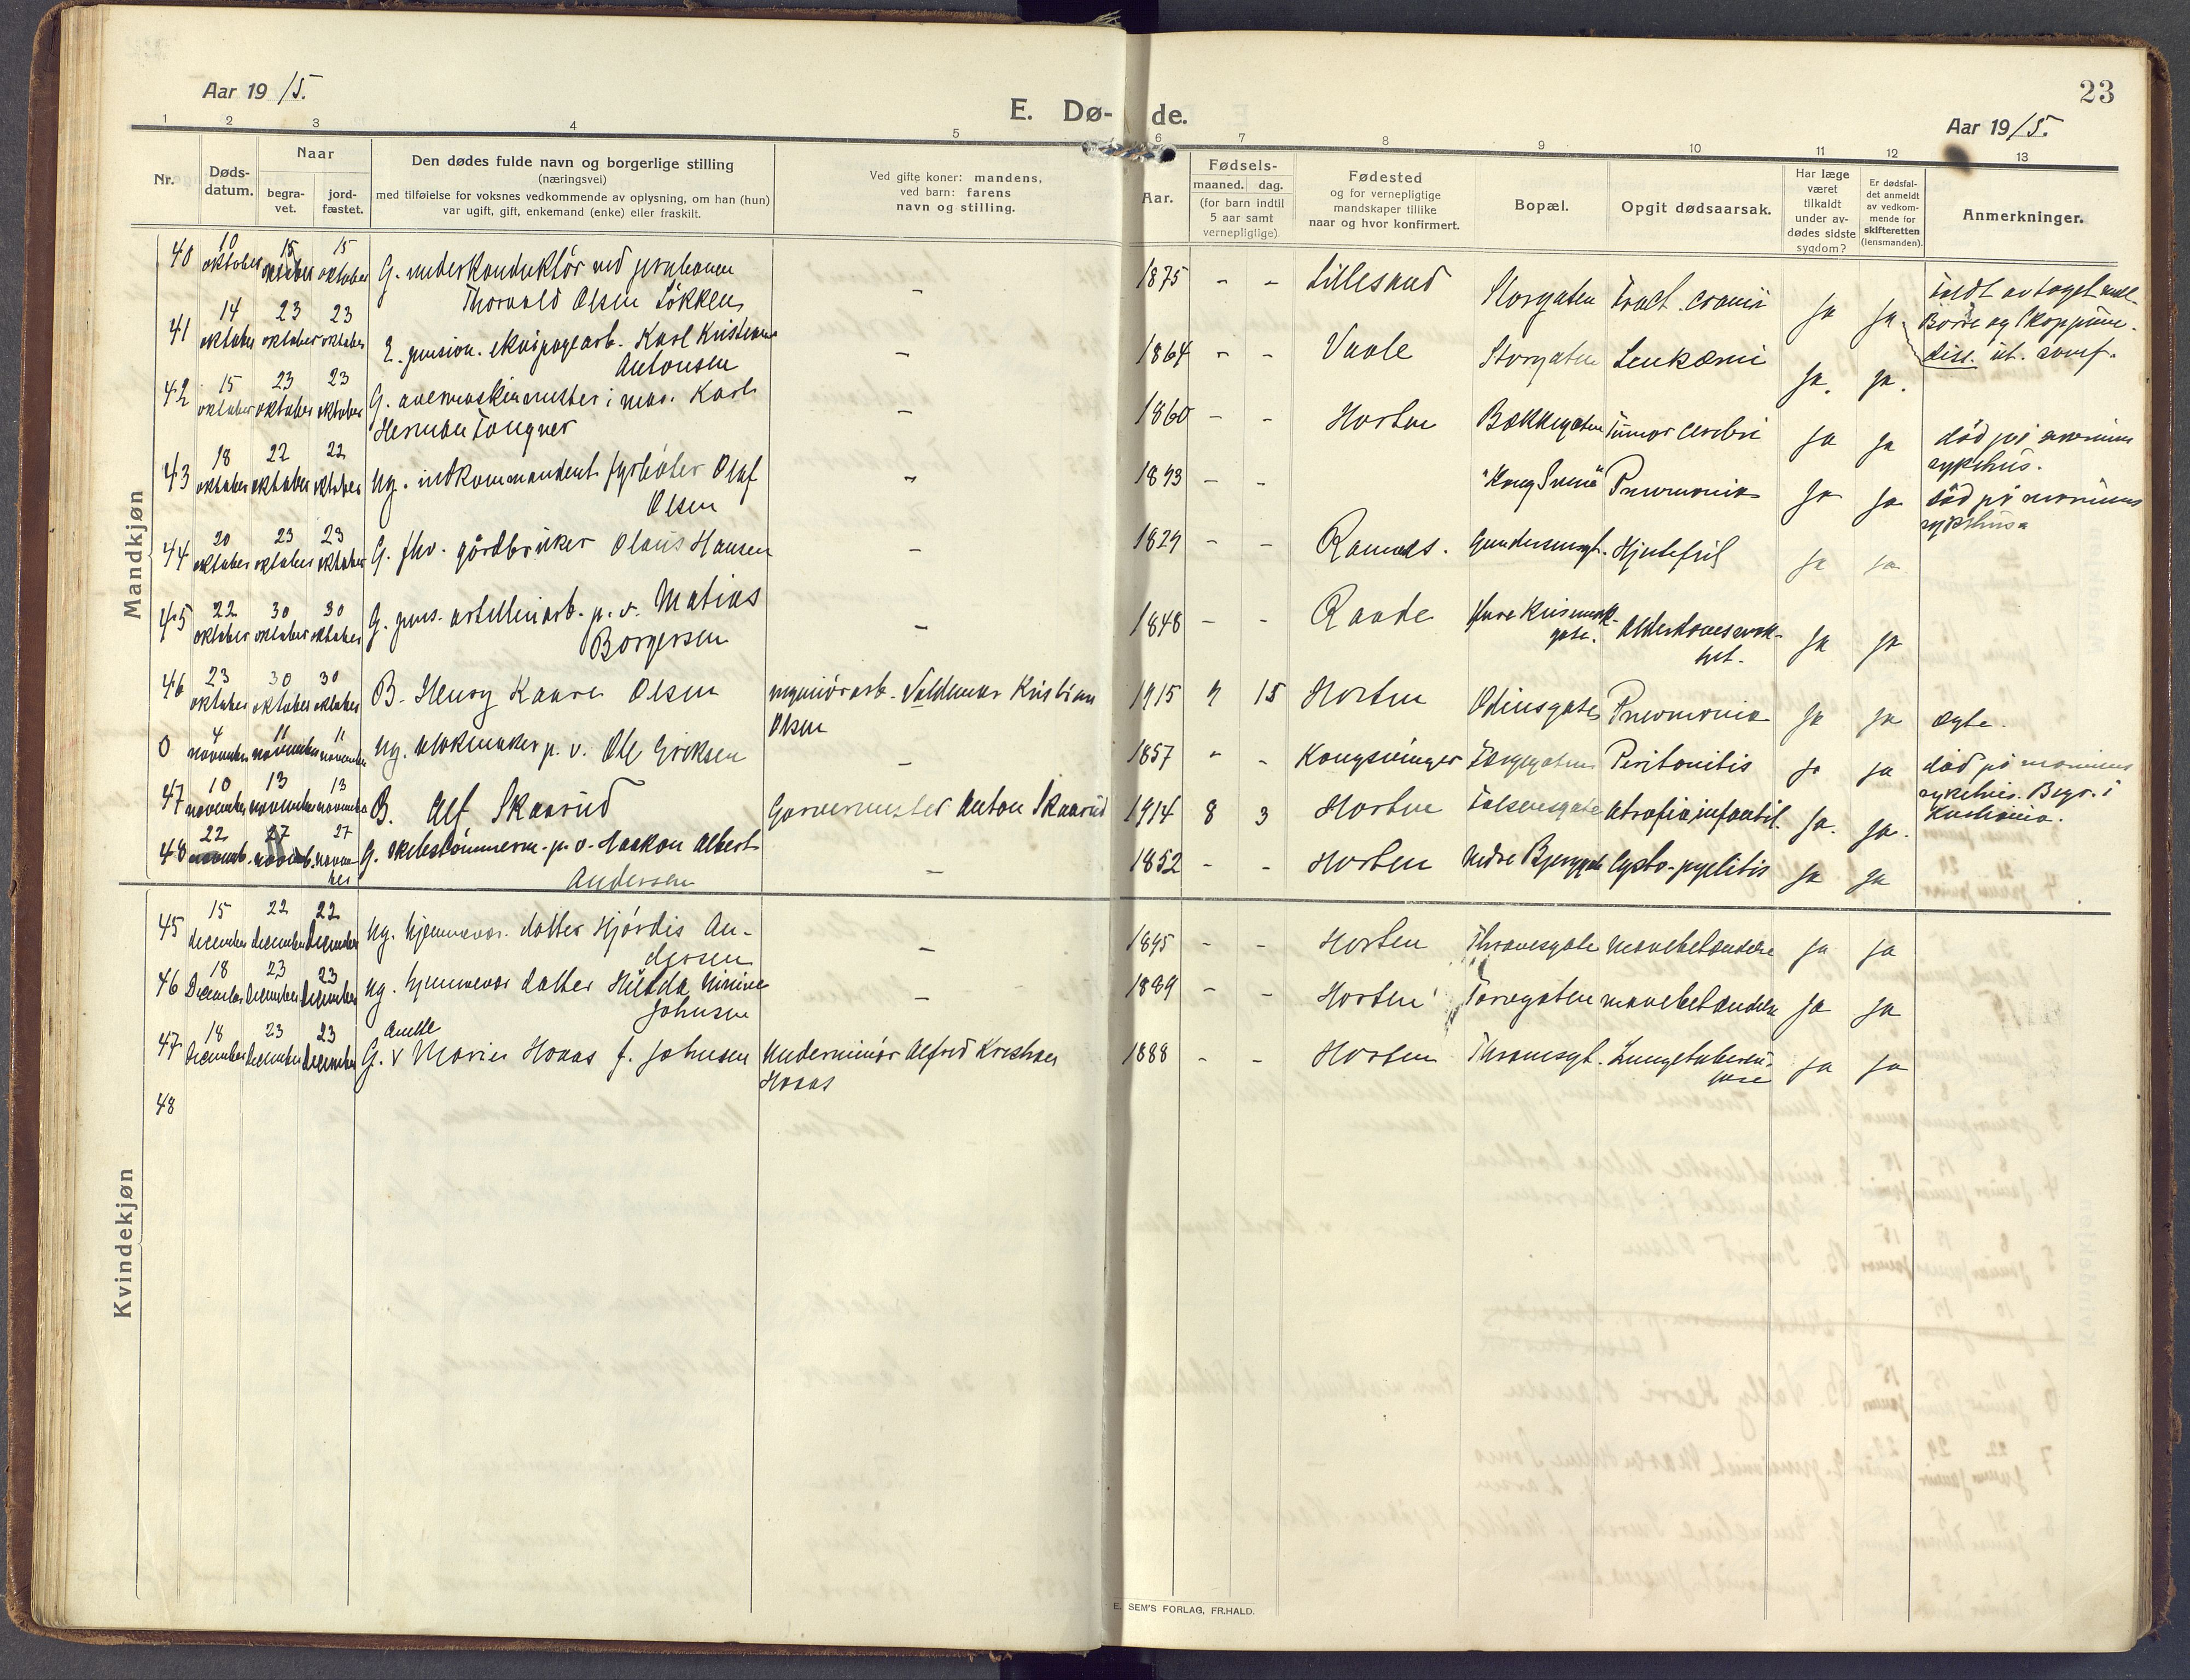 Aar 1915.
E. Dø- de.
23
Aar 1915.
1 2 3 4 5 6 7 8 9 10 11 12 13
Nr.
Døds-
datum.
Naar
begra-
vet.
jord-
fæstet.
Den dødes fulde navn og borgerlige stilling
(næringsvei)
med tilføielse for voksnes vedkommende av oplysning, om han (hun)
var ugift, gift, enkemand (enke) eller fraskilt.
Ved gifte koner: mandens,
ved barn: farens
navn og stilling.
Aar.
Fødsels-
maaned. dag.
(for barn indtil
5 aar samt
vernepligtige)
Fødested
og for vernepligtige
mandskaper tillike
naar og hvor konfirmert.
Bopæl.
Opgit dødsaarsak.
Har læge
været
tilkaldt
under av-
dødes sidste
sygdom?
Er dødsfal-
det anmeldt
av vedkom-
mende for
skifteretten
(lensmanden).
Anmerkninger.
Mandkjøn
40 10 oktober 15 oktober 15 oktober G. underkonduktør ved jernbanen
Thorvald Olsen Løkken - 1875 - - Lillesand Storgaten Fract. cranii ja ja
Borre og Skoppum.
41 14 oktober 23 oktober 23 oktober E. pension. ekvipagearb. Karl Kristian
Antonsen - 1864 - - Vaale Storgaten Leukæmi ja. ja.
42 15 oktober 23 oktober 23 oktober G. Karl
Herman Tangner - 1860 - - Horten Bækkegaten Tumor cerebri ja ja død på marinens
sykehus.
43 18 oktober 22 oktober 22 oktober ug. indkommandert fyrbøter Olaf
Olsen - 1893 - - Pneumonia ja ja død på marinens
sykehus
44 20 oktober 23 oktober 23 oktober G. fhv. gårdbruker Olaus Hansen - 1829 - - Ramnes. Gundersensgt. Hjertefeil ja ja
45 22 oktober 30 oktober 30 oktober G. pens. artilleriarb. p. v. Matias
Borgersen - 1848 - - Raade Alderdomssvak-
het. ja ja
46 23 oktober 30 oktober 30 oktober B. Henry Kaare Olsen minørarb. Valdemar Kristian
Olsen 1915 7 15 Horten Odinsgate Pneumonia ja ja ægte.
0 4 november 11 november 11 november ug. p. v. Ole Eriksen - 1857 - - Kongsvinger Peritonitis ja ja død på marinens
sykehus. Begr. i
Kristiania.
47 10 november 13 november 13 november B. Alf Skaarud Garvermester Anton Skaarud 1914 8 3 Horten Falsensgate Atrofia infantil. ja. ja.
48 22 novemb. 27 novemb. 27 novem-
ber G. skibstømmerm. p. v. Haakon Albert
Andersen - 1852 - - Horten Nedre Bjerggate Cysto-pyelitis ja ja
Kvindekjøn
45 15 december 22 december 22 december ug. hjemmevær. datter Hjørdis An-
dersen - 1895 - - Horten Thranesgate Mavebetændelse ja ja
46 18 December 23 December 23 December ug. hjemmevær datter Hilda Minine
Johnsen - 1889 - - Horten Torvgaten mavebetændelse ja ja
47 18 December 23 December 23 December G. v Marie Haaas f. Johnsen Underminør Alfred Kristian
Haaas 1888 - - Horten Thranesgt. Lungetuberku-
lose ja ja
48
E. SEM'S FORLAG, FR.HALD.